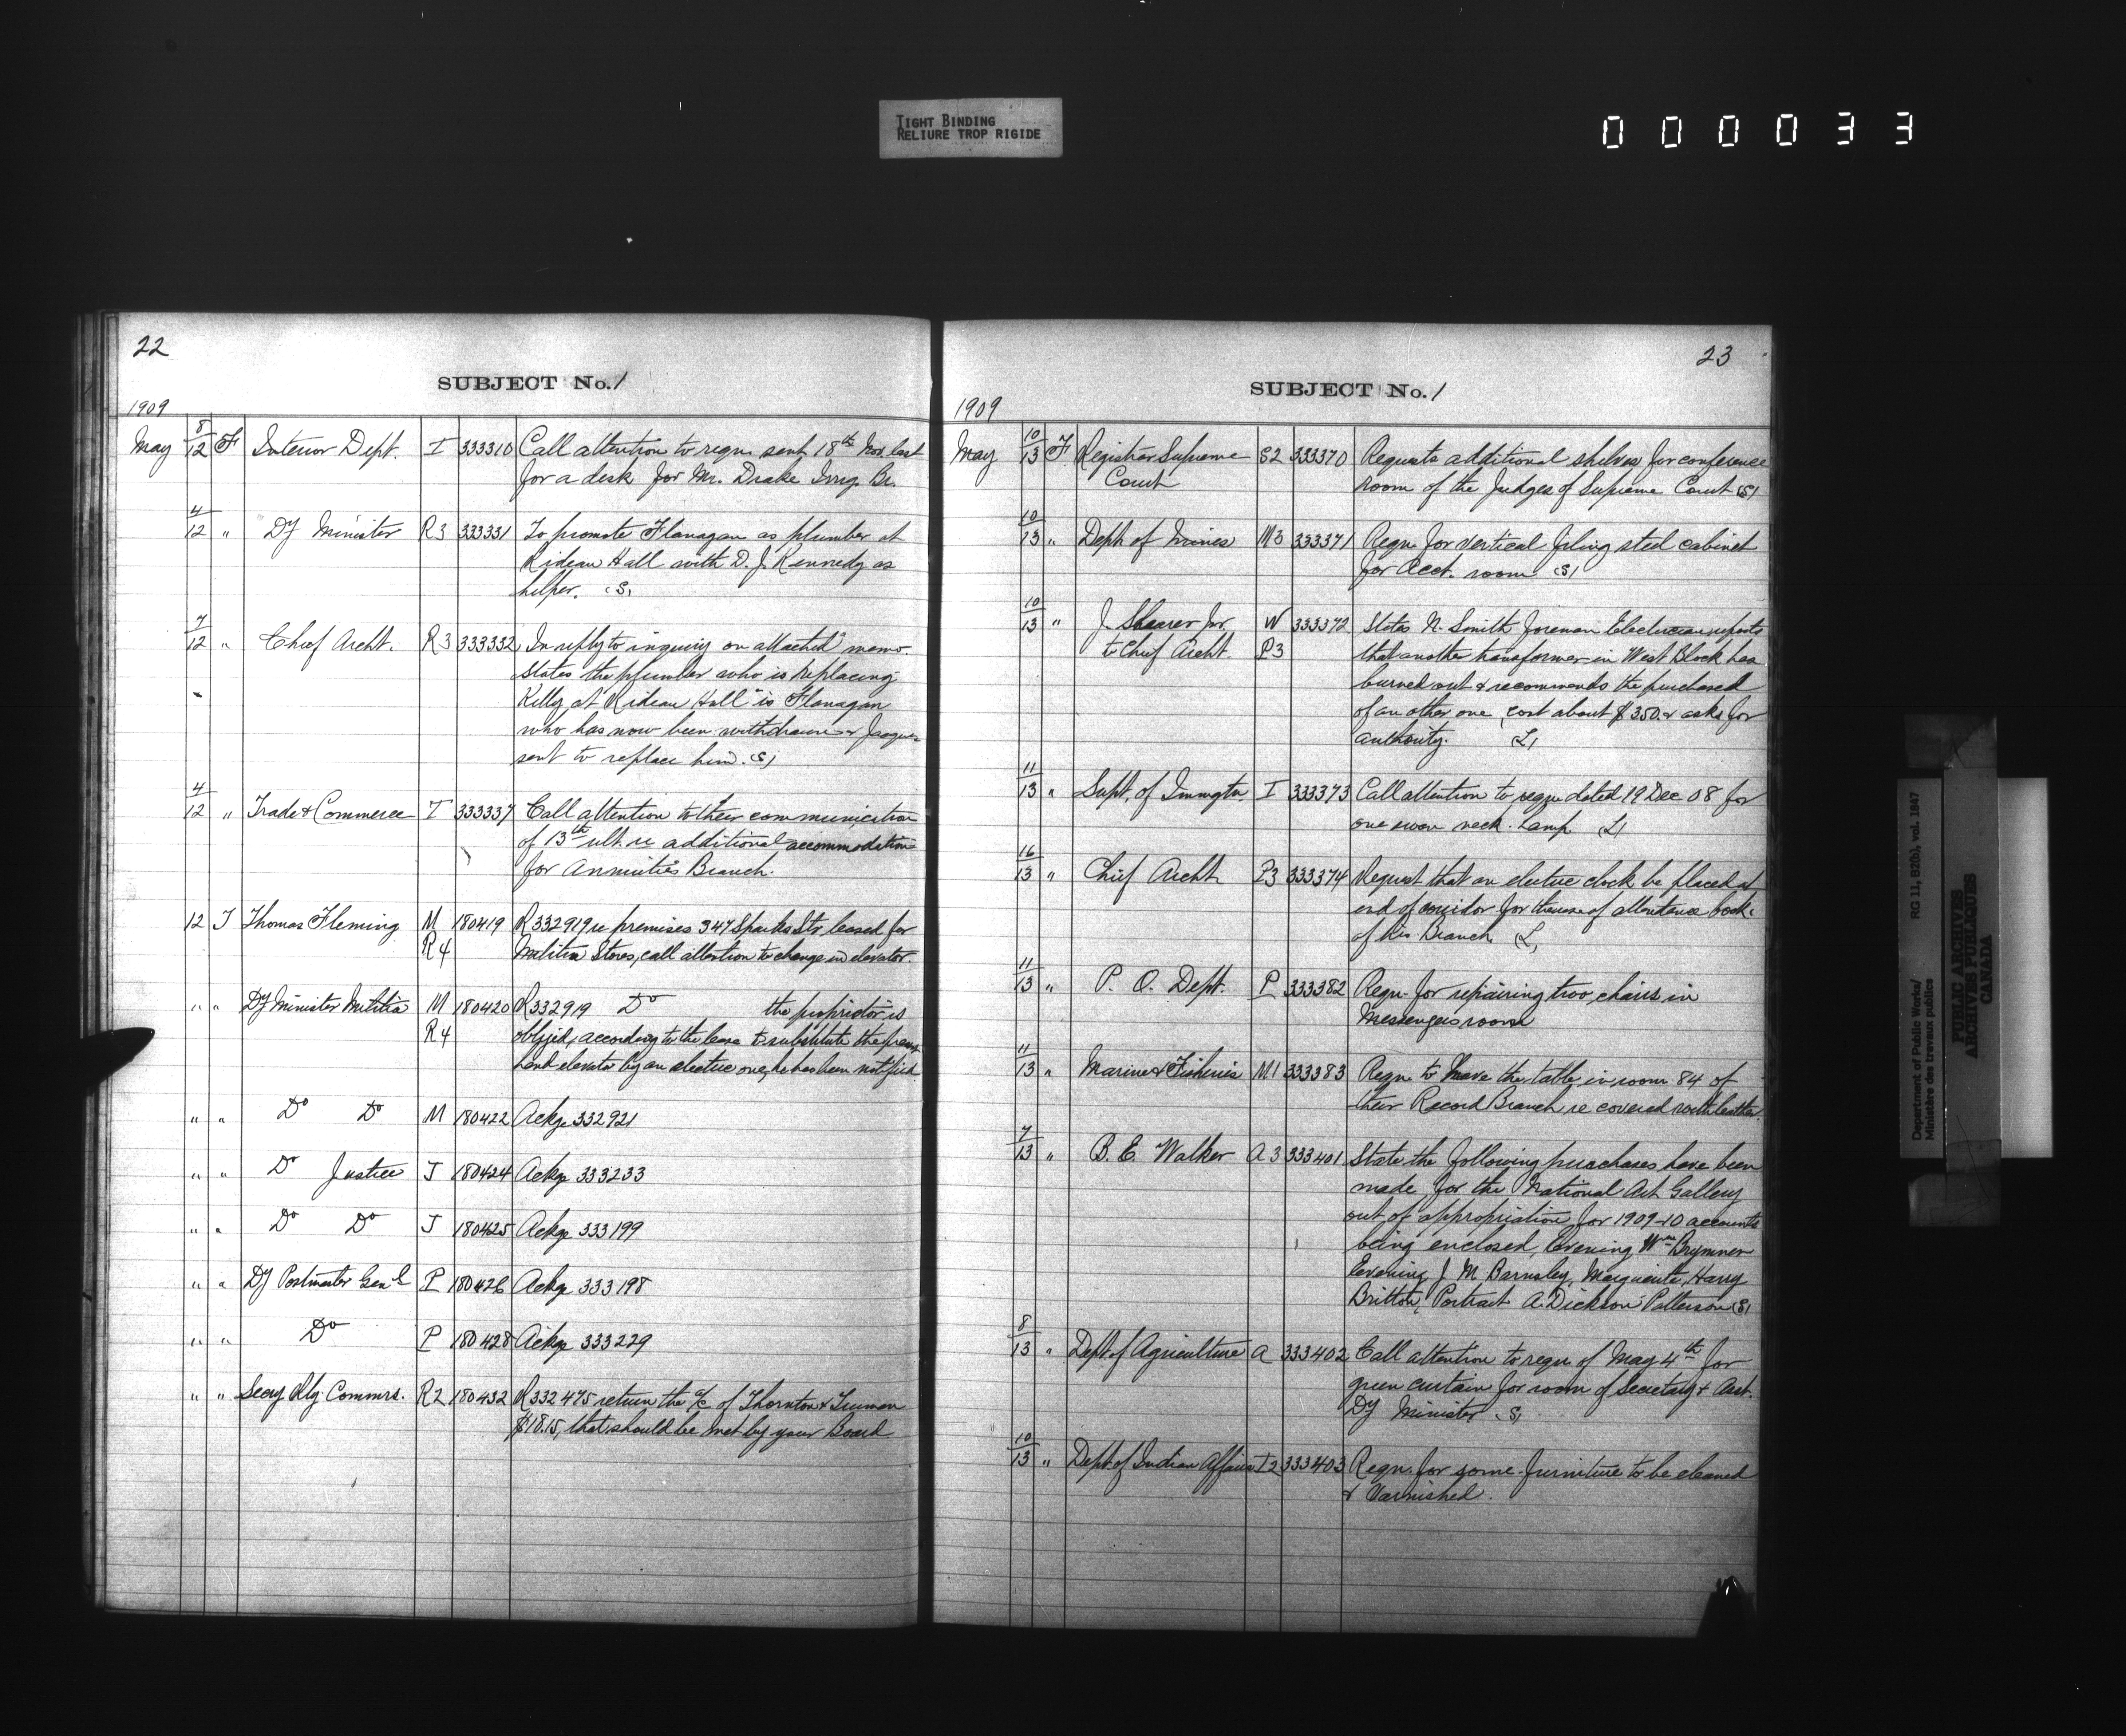 TIGHT BINDING
RELIURE TROP RIGIDE
000033
22
SUBJECT No. 1
1909
May 8/12 F Interior Dept. I 333310 Call attention to reqn. sent 18th Nov. last
for a desk for Mr. Drake Irrig. Br.
4/12 " Dy Minister R3 333331 To promote Flanagan as plumber at
Rideau Hall with D. J. Kennedy as
helper. (S)
7/12 " Chief Archt. R3 333332 In reply to inquiry on attached memo.
States the plumber who is replacing
Kelly at "Rideau Hall" is Flanagan
who has now been withdrawn & Jacques
sent to replace him. (S)
4/12 " Trade & Commerce T 333337 Call attention to their communication
of 13th ult. re additional accommodation
for Annuities Branch.
12 T Thomas Fleming M 180419 R332919 re premises 347 Sparks Str. leased for
R4 Militia Stores, call attention to change in elevator.
" " Dy Minister Militia M 180420 R332919 Do the proprietor is
R4 obliged, according to the lease to substitute the present
hand elevator by an electric one, he has been notified.
" " Do Do M 180422 Ackge 332921
" " Do Justice J 180424 Ackge 333233
" " Do Do J 180425 Ackge 333199
" " Dy Postmaster Genl P 180426 Ackge 333198
" " Do P 180428 Ackge 333229
" " Secy Rly. Commrs. R2 180432 R332475 return the a/c of Thornton & Truman
$18.15, that should be met by your Board
23
SUBJECT No. 1
1909
May 10/13 F Registrar Supreme S2 333370 Requests additional shelves for conference
Court room of the Judges of Supreme Court (S)
10/13 " Dept. of Mines M3 333371 Reqn. for vertical filing steel cabinet
for Acct. room (S)
10/13 " J. Shearer for W 333372 States N. Smith foreman Electrician reports
to Chief Archt. P3 that another transformer in West Block has
burned out & recommends the purchased
of an other one, cost about $350. & asks for
authority. (L)
11/13 " Supt. of Immgtn. I 333373 Call attention to reqn dated 19 Dec 08 for
one swan neck lamp (L)
16/13 " Chief Archt P3 333374 Request that an electric clock be placed at
end of corridor for the use of attendance book
of his Branch (L)
11/13 " P. O. Dept. P 333382 Reqn. for repairing two chairs in
Messengers room
11/13 " Marine & Fisheries M1 333383 Reqn. to have the table in room 84 of
their Record Branch re covered with leather.
7/13 " B. E. Walker A3 333401 State the following purchases have been
made for the National Art Gallery
out of appropriation for 1909-10 accounts
being enclosed, Evening Wm Brymner
Evening J M Barnsley, Marguerite, Harry
Britton, Portrait A. Dickson Patterson (S)
8/13 " Dept. of Agriculture A 333402 Call attention to reqn of May 4th for
green curtain for room of Secretary & Asst.
Dy Minister (S)
10/13 " Dept. of Indian Affairs I2 333403 Reqn. for some furniture to be cleaned
& Varnished.
Department of Public Works/ RG 11, B2(b), vol. 1847
Ministère des travaux publics
PUBLIC ARCHIVES
ARCHIVES PUBLIQUES
CANADA